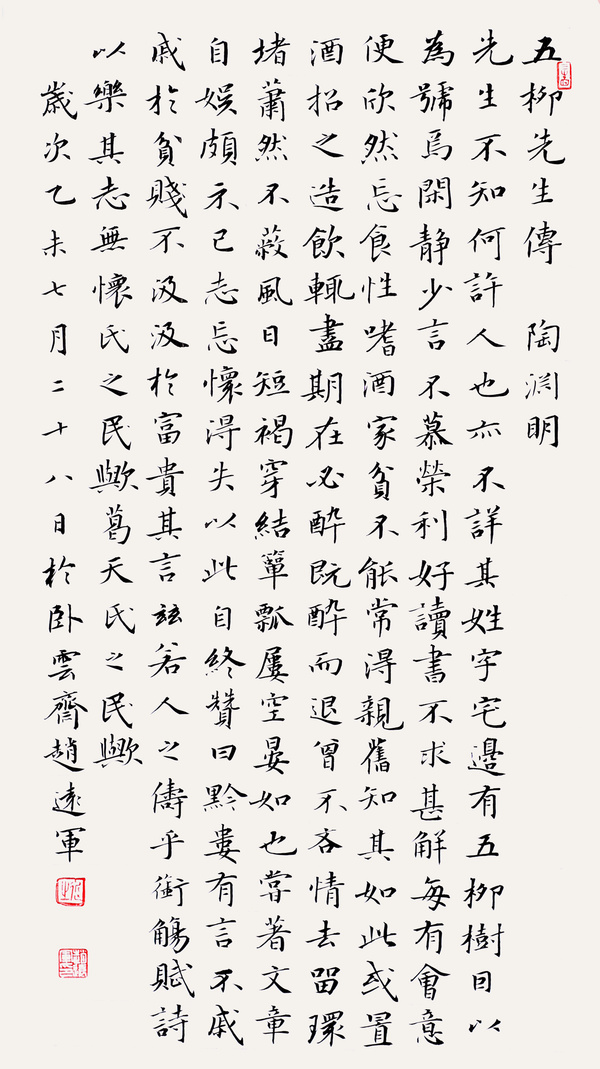 五柳先生傳 陶渊明
先生不知何許人也亦不詳其姓字宅邊有五柳樹因以
為號焉閑靜少言不慕榮利好讀書不求甚解每有會意
便欣然忘食性嗜酒家貧不能常得親舊知其如此或置
酒招之造飲輒盡期在必醉既醉而退曾不吝情去留環
堵蕭然不蔽風日短褐穿結簞瓢屢空晏如也嘗著文章
自娛頗示己志忘懷得失以此自終贊曰黔婁有言不戚
戚於貧賤不汲汲於富貴其言茲若人之儔乎銜觴賦詩
以樂其志無懷氏之民歟葛天氏之民歟
歲次乙未七月二十八日於卧雲齊趙遠軍